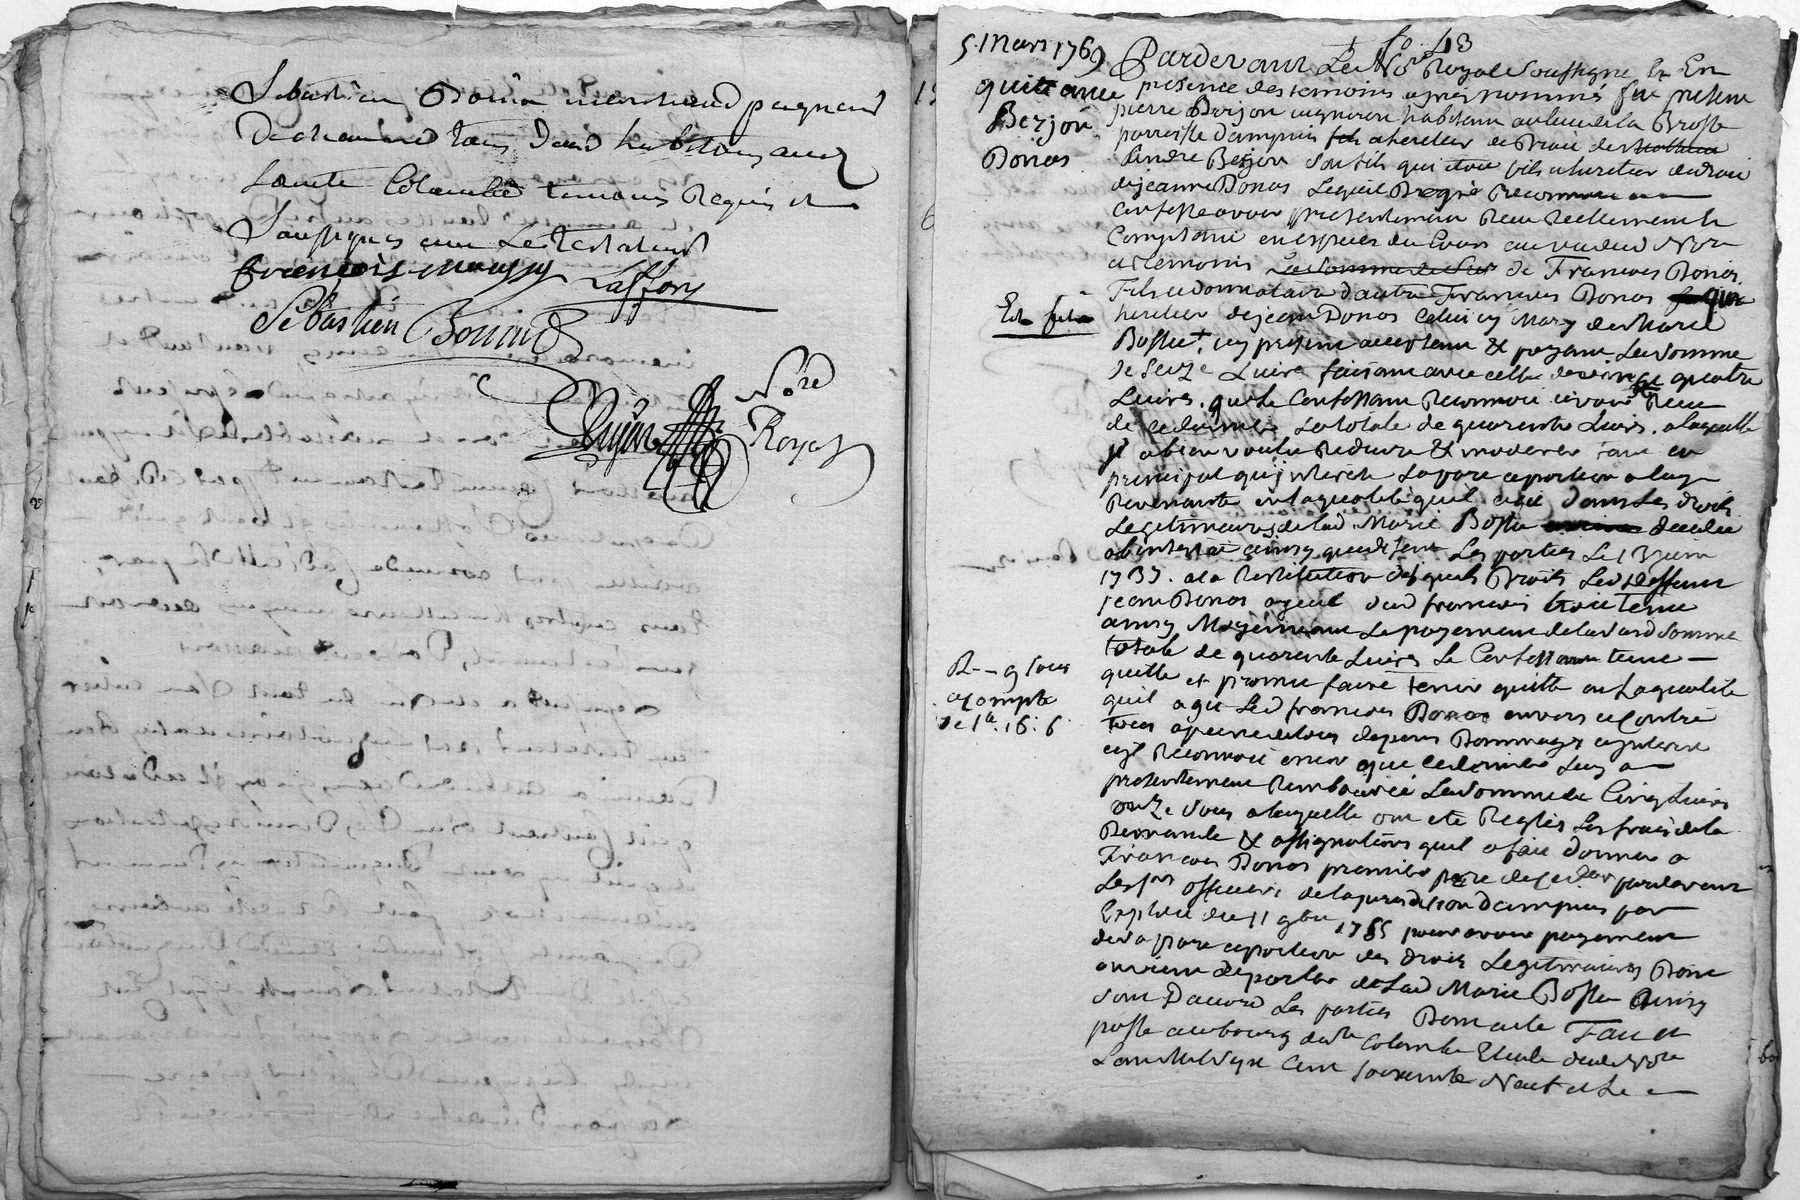 Sebastien Bonin marchand peigneur
de chanvre tous deux habitans aud
Sainte Colombe temoins Requis et
Soussignes avec Le Testateur
François moussy Laffons
Sebastien Bonin
Nore
Royal
fo. 43
5. Mars 1769
quittance
Berjon
Donas
Pardevant Le Nore Royal soussigné & En
presence des temoins apres nommés fut present
pierre Berjon vigneron habitant au lieu de la Brosse
parroisse dampuis heritier de droit de
andre Berjon son fils qui etoit fils et heritier de droit
de jeanne Donas Lequel De gré Reconnoit et
confesse avoir presentement Receu Reellement &
Comptant en especes du Cours au veu dud Nore
et temoins La Somme de Sei de François Donas
Fils et donnataire d'autre François Donas qui
heritier de jean Donas Celui cy Mary de Marie
Est fait
Bossu + cy present acceptant & payant La somme
de Seize Livres faisant avec celle de vingt quatre
Livres que le Confessant Reconnoit avoir Receu
de ce La totale de quarente Livres a laquelle
il a bien voulu Reduire & moderer tant en
principal qu'interets La part et portion a luy
Revenante en la qualité quil agit dans Les droits
Legitimaires de lad Marie Bossu decedée
ab intestat ainsy que disent Les parties Le 13 juin
1737. a la Restitution desquels Droits Led deffunt
jean Donas ayeul dud françois etoit tenu
ainsy Moyennant Le payement de lad somme
totale de quarente Livres Le Confessant tient
quitte et promet faire tenir quitte en la qualité
quil agit Led françois Donas envers et Contre
tous a peine de tous depens Dommages interets
R - 9 sous
a compte
de 1ll. 16. 6
et Reconnoit encor que luy a
presentement Rembourcé La somme de Cinq Livres
onze sous a laquelle ont eté Reglés Les frais de la
Demande & assignations quil a fait donner a
François Donas premier pere de pardevant
Les srs officiers de la jurisdiction dampuis par
Exploit du 11 9bre 1765 pour avoir payement
de sa part et portion des droits Legitimaires Dont
on vient de parler de Lad Marie Bossu ainsy
sont D'accord Les parties Dont acte Fait et
passé au bourg de Ste Colombe Etude dud Nore
L'an mil Sept Cent soixante Neuf et Le